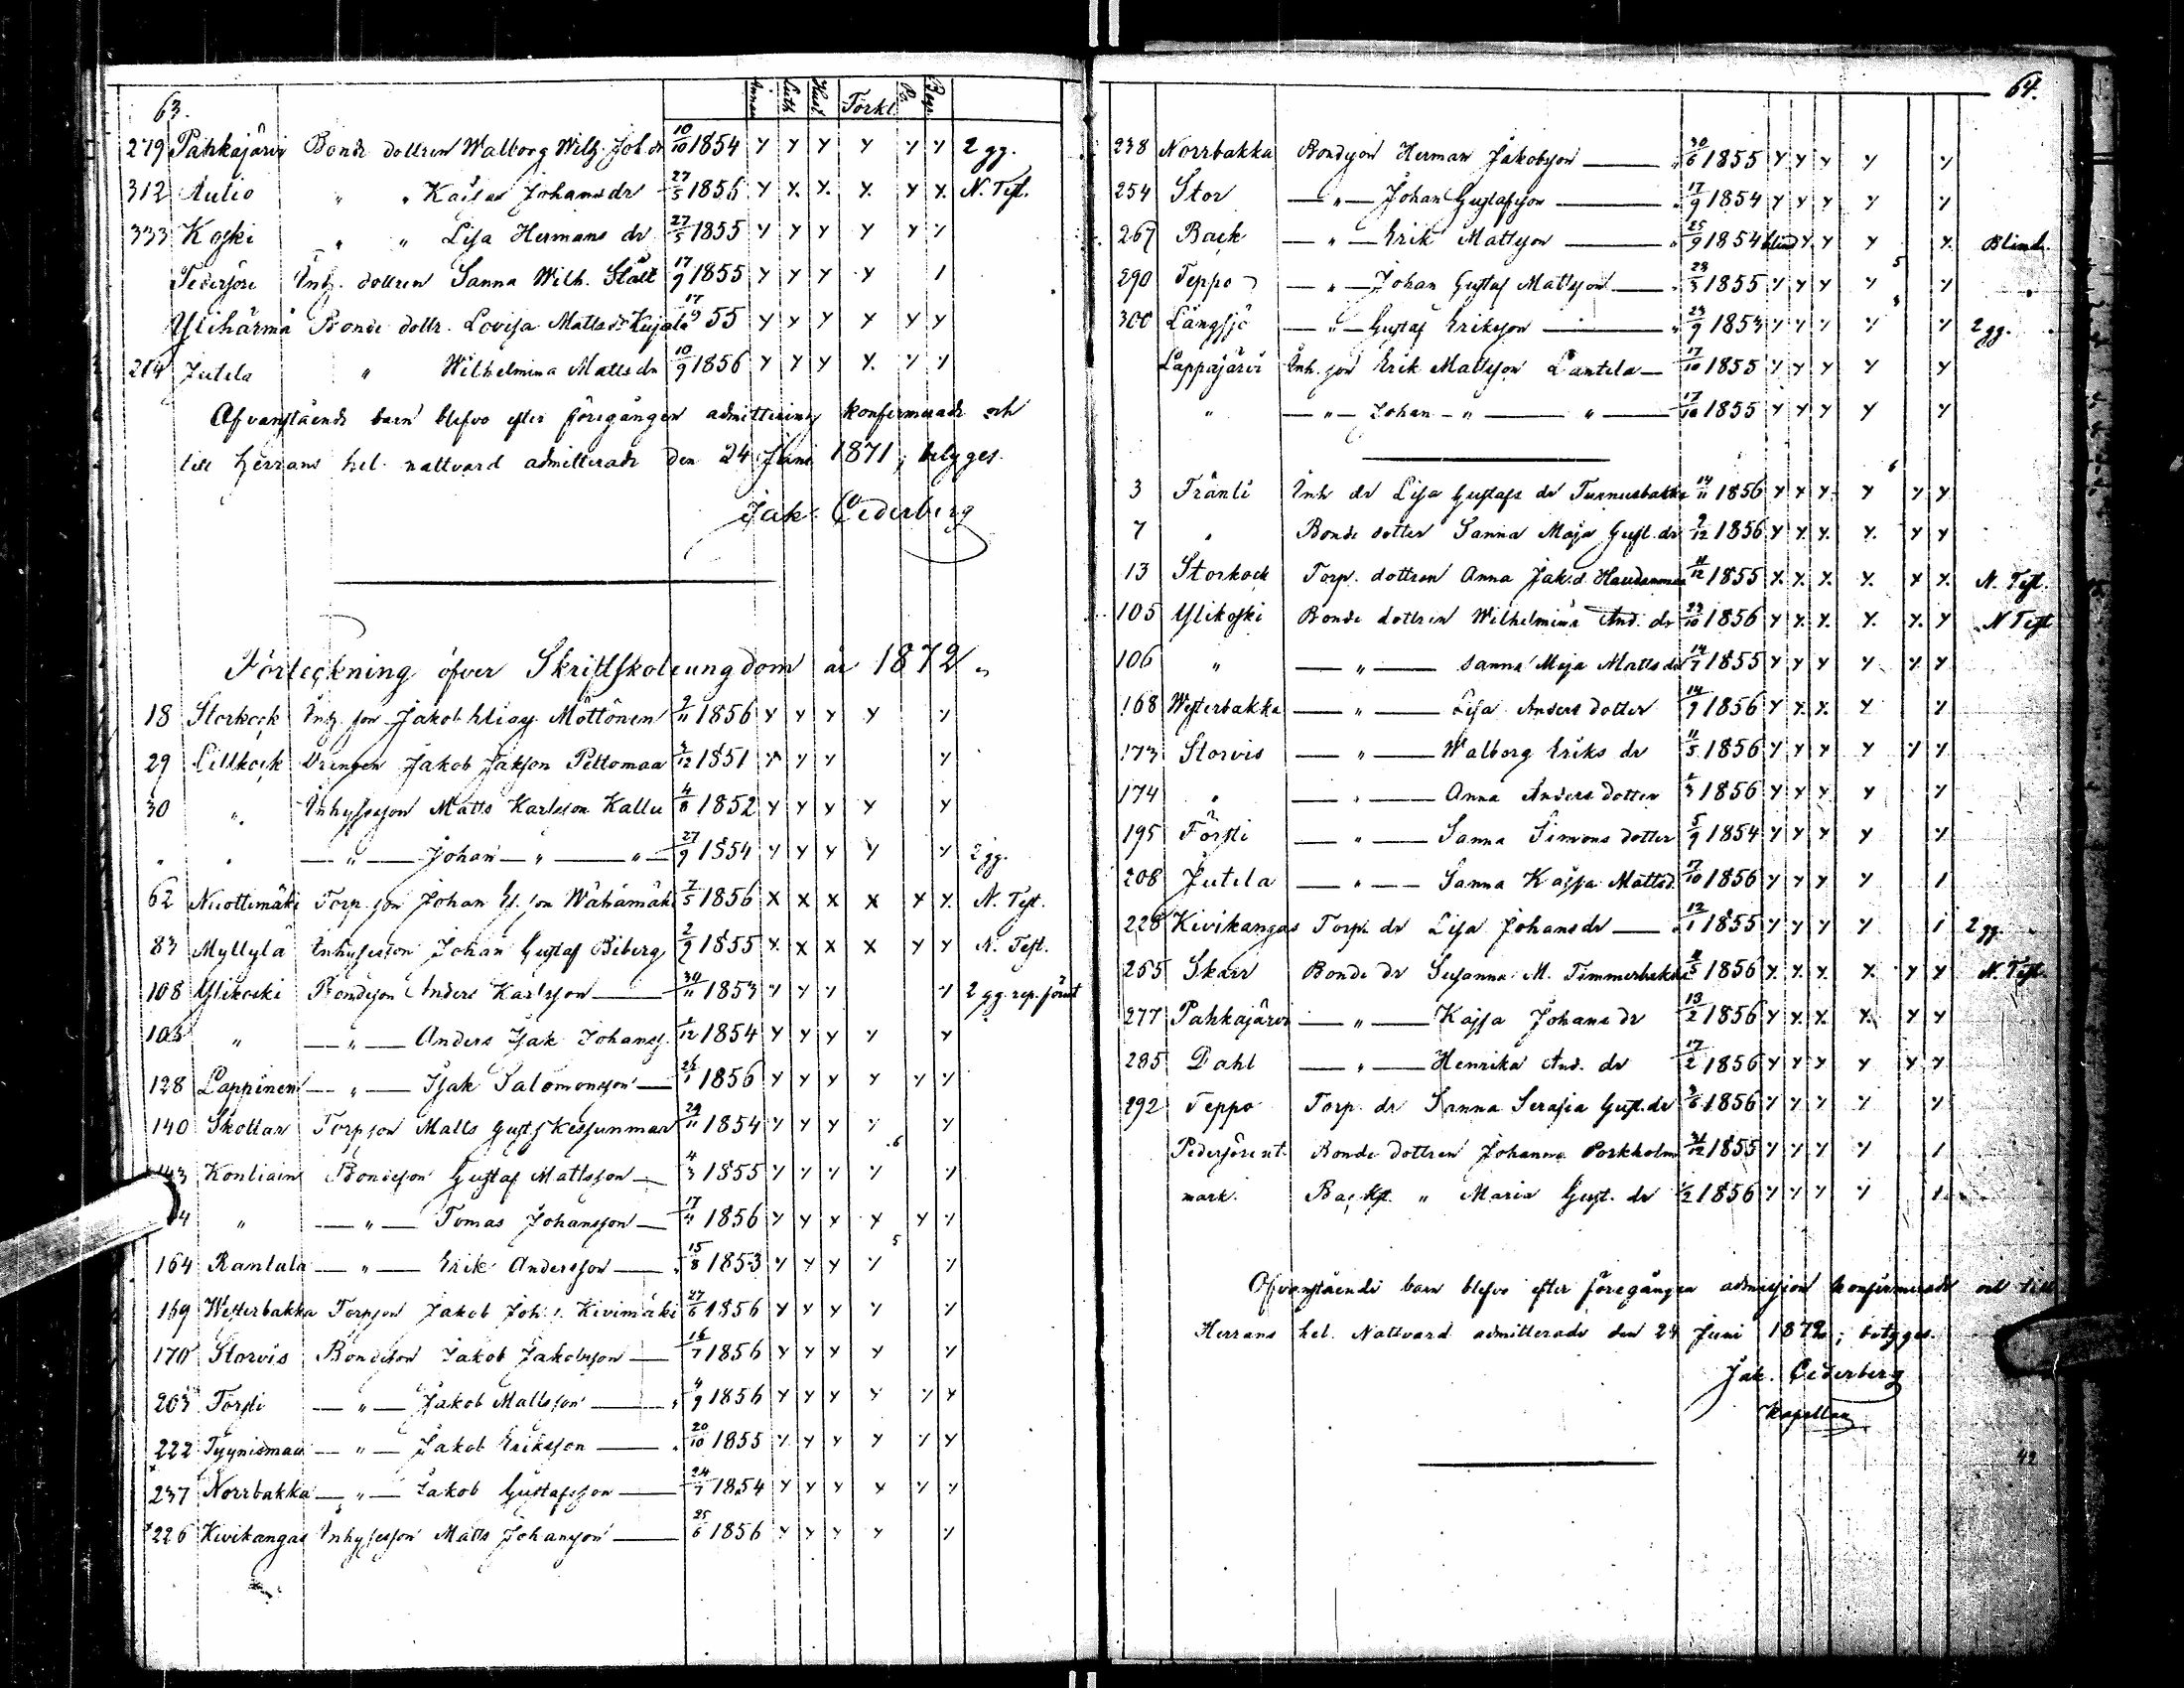 63.
Innan Luth Husl Förkl. Ps Begr.
279 Pahkajärvi Bonde dottren Walborg Wilh. Joh. dr 10/10 1854 x x x x x x 2 gg.
312 Aulio " " Kajsa Johans dr 27/5 1856 x x x x x x N. Test.
333 Koski " " Lisa Hermans dr 27/5 1855 x x x x x x
Pedersöre Inh. dottren Sanna Wilh. Slätt 17/9 1855 x x x x 1
Ylihärmä Bonde dottr. Lovisa Matts dr Kujala 17/9 55 x x x x x x
214 Jutila " Wilhelmina Matts dr 10/9 1856 x x x x x x
Ofvanstående barn blefvo efter föregången admittering konfirmerade och
till Herrans hel. nattvard admitterade den 24 Juni 1871; betyges.
Jak. Cederberg
Förteckning öfver Skriftskoleungdom år 1872.
18 Storkock Inh. son Jakob Eliass. Möttönen 9/11 1856 x x x x x
29 Lillkock Drengen Jakob Jakson Peltomaa 3/12 1851 x x x x
30 " Inhysesson Matts Karlsson Kallu 4/8 1852 x x x x x
" " — " — Johan — " — " — 27/9 1854 x x x x x 2 gg.
62 Nuottimäki Torp. son Johan H. son Wähämäki 7/5 1856 x x x x x x N. Test.
83 Myllylä Inhysesson Johan Gustaf Biberg 2/9 1855 x x x x x x N. Test.
108 Ylikoski Bondeson Anders Karlsson — 30/11 1853 x x x x 2 gg. rep. förut
108 " — " — Anders Isak Johanss. 1/12 1854 x x x x x
128 Lappinen — " — Isak Salomonsson — 26/1 1856 x x x x x x
140 Skottar Torpson Matts Gustfs Kessunmaa 29/11 1854 x x x x x
143 Kontiain Bondeson Gustaf Mattsson — 4/3 1855 x x x x 6 x
" — " — Tomas Johansson — 17/4 1856 x x x x x x
164 Rantala — " — Erik Andersson — 15/8 1853 x x x x 5 x
169 Westerbakka Torpson Jakob Joh. s. Kivimäki 27/6 1856 x x x x x
170 Storvis Bondeson Jakob Jakobsson — 16/7 1856 x x x x x
203 Forsti — " — Jakob Mattsson — 4/9 1856 x x x x x x
222 Tyynismaa — " — Jakob Eriksson — 20/10 1855 x x x x x x
237 Norrbakka — " — Jakob Gustafsson — 24/7 1854 x x x x x x
226 Kivikangas Inhysesson Matts Johansson — 25/6 1856 x x x x x
64.
238 Norrbakka Bondeson Herman Jakobsson — 30/6 1855 x x x x x
254 Stor — " — Johan Gustafsson — 17/9 1854 x x x x x
267 Back — " — Erik Mattsson — 25/9 1854 blind x x x x Blind.
290 Teppo — " — Johan Gustaf Mattsson — 23/3 1855 x x x x 5 x
300 Långsjö — " — Gustaf Eriksson — 23/9 1853 x x x x x 2 gg.
Lappajärvi Inh. son Erik Mattsson Lantela — 17/10 1855 x x x x x
" — " — Johan — " — " — 17/10 1855 x x x x x
3 Tränti Inh dr Lisa Gustafs dr Turnusbakka 14/11 1856 x x x x 6 x x
7 " Bonde dotter Sanna Maja Gust. dr 9/12 1856 x x x x x x
13 Storkock Torp. dottren Anna Jak.d. Haudanmaa 11/12 1855 x x x x x x N. Test.
105 Ylikoski Bonde dottren Wilhelmina And. dr 23/10 1856 x x x x x x N Test
106 " — " — Sanna Maja Matts dr 14/7 1855 x x x x x x
168 Westerbakka — " — Lisa Anders dotter 14/9 1856 x x x x x
173 Storvis — " — Walborg Eriks dr 11/5 1856 x x x x x x
174 " — " — Anna Anders dotter 6/3 1856 x x x x x
195 Försti — " — Sanna Simons dotter 5/9 1854 x x x x x
208 Jutila — " — Sanna Kajsa Mattsd. 17/10 1856 x x x x 1
228 Kivikangas Torp. dr Lisa Johans dr — 12/1 1855 x x x x 1 2 gg.
265 Skarr Bonde dr Susanna M. Timmerbakka 8/5 1856 x x x x x x N. Test.
277 Pahkajärvi — " — Kajsa Johans dr 13/2 1856 x x x x x x
285 Dahl — " — Henrika And. dr 17/2 1856 x x x x x x
292 Teppo Torp. dr Sanna Serafia Gust. dr 3/6 1856 x x x x x
Pedersöre ut. Bonde dottren Johanna Porkholm 31/12 1855 x x x x 1
mark. Backst. " Maria Gust. dr 1/2 1856 x x x x 1
Ofvanstående barn blefvo efter föregången admission konfirmerade och till
Herrans hel. Nattvard admitterade den 24 Juni 1872; betyges.
Jak. Cederberg
Kapellan
42